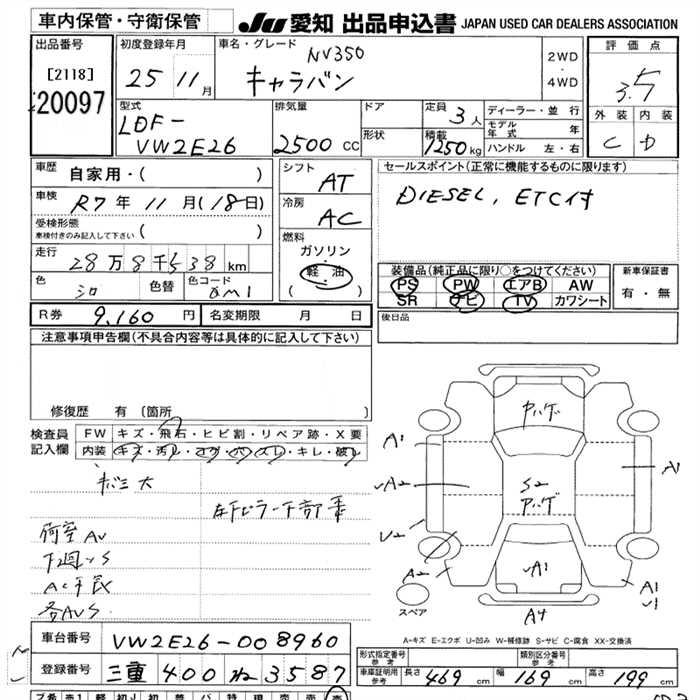 車内保管・守衛保管
JU 愛知 出品申込書 JAPAN USED CAR DEALERS ASSOCIATION
出品番号
[2118]
20097
初度登録年月
25 11月
車名・グレード
NV350
キャラバン
2WD
・
4WD
評価点
3.5
外装 内装
C D
型式
LDF-
VW2E26
排気量
2500 CC
ドア
形状
定員 3人
積載 1250kg
ディーラー・並 行
モデル年式 年
ハンドル 左・右
車歴
自家用・( )
車検
R7年 11月(18日)
受検形態
車検付きのみ記入して下さい ( )
走行
28万8千538km
色
シロ
色替
色コード
QM1
シフト
AT
冷房
AC
燃料
ガソリン
軽 油
( )
セールスポイント(正常に機能するものに限ります)
DIESEL, ETC付
装備品(純正品に限り○をつけてください)
PS PW エアB AW
SR ナビ TV カワシート
新車保証書
有・無
後日品
R券 9,160円 名変期限 月 日
注意事項申告欄(不具合内容等は具体的に記入して下さい)
修復歴 有 [箇所 ]
検査員
記入欄
FW キズ・飛石・ヒビ割・リペア跡・X要
内装 キズ・汚れ・コゲ・穴・スレ・キレ・破れ
左下ピラー下部
荷室AU
下廻りS
各AUS
ヤハゲ
A1
A2
U2
A2
A1
S2
アハゲ
A1
A1
A4
スペア
A-キズ E-エクボ U-凹み W-補修跡 S-サビ C-腐食 XX-交換済
車台番号 VW2E26-008960
登録番号 三重 400 ね 3587
形式指定番号
参考
類別区分番号
参考
車庫証明用
参考
長さ 469cm 幅 169cm 高さ 199cm